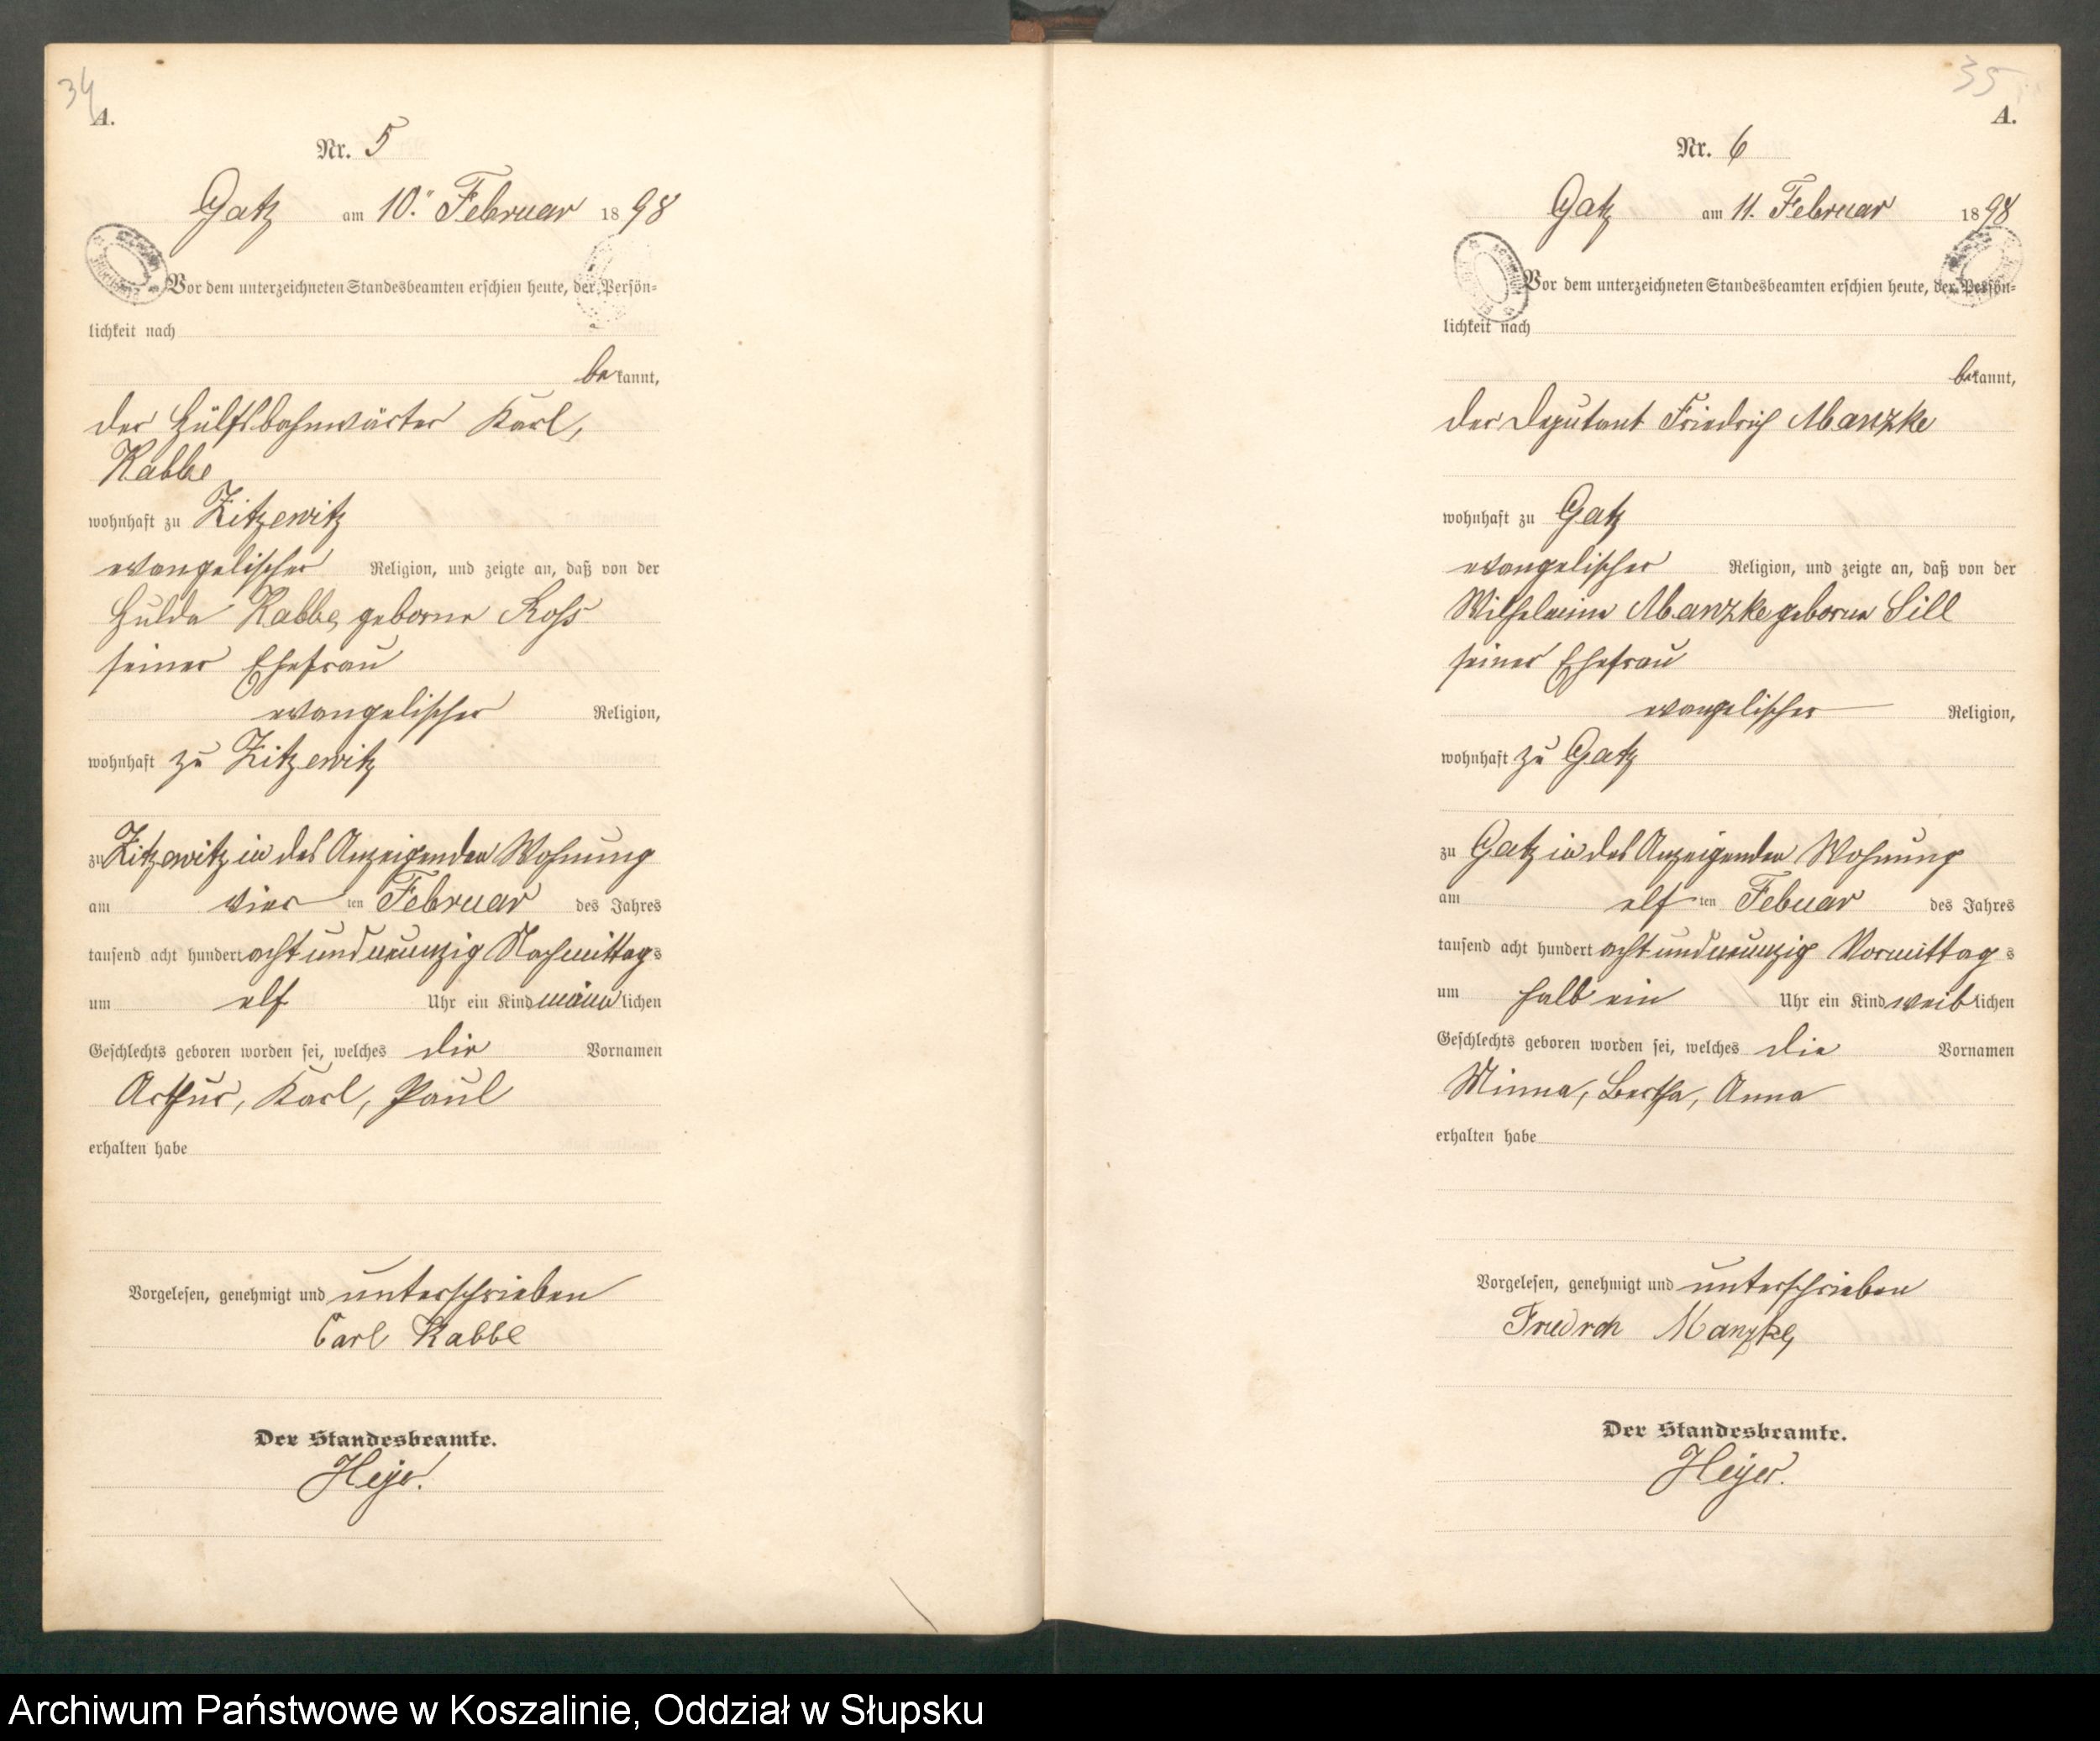 34
A.
Nr. 5
Gatz am 10. Februar 1898
Vor dem unterzeichneten Standesbeamten erschien heute, der Persön=
lichkeit nach
bekannt,
der Hülfsbahnwärter Karl,
Rabbe
wohnhaft zu Zitzewitz
evangelischer Religion, und zeigte an, daß von der
Hulda Rabbe, geborne Ross
seiner Ehefrau
evangelischer Religion,
wohnhaft zu Zitzewitz
zu Zitzewitz in des Anzeigenden Wohnung
am vier ten Februar des Jahres
tausend acht hundert acht und neunzig Nachmittags
um elf Uhr ein Kind männlichen
Geschlechts geboren worden sei, welches die Vornamen
Arthur, Karl, Paul
erhalten habe
Vorgelesen, genehmigt und unterschrieben
Carl Rabbe
Der Standesbeamte.
Heyer.
35
A.
Nr. 6
Gatz am 11. Februar 1898
Vor dem unterzeichneten Standesbeamten erschien heute, der Persön=
lichkeit nach
bekannt,
der Deputant Friedrich Manzke
wohnhaft zu Gatz
evangelischer Religion, und zeigte an, daß von der
Wilhelmine Manzke geborne Sill
seiner Ehefrau
evangelischer Religion,
wohnhaft zu Gatz
zu Gatz in des Anzeigenden Wohnung
am elf ten Febuar des Jahres
tausend acht hundert acht und neunzig Vormittags
um halb ein Uhr ein Kind weiblichen
Geschlechts geboren worden sei, welches die Vornamen
Minna, Bertha, Anna
erhalten habe
Vorgelesen, genehmigt und unterschrieben
Friedrch Manzke
Der Standesbeamte.
Heyer.
Archiwum Państwowe w Koszalinie, Oddział w Słupsku